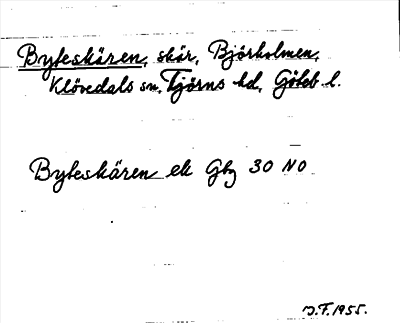 Byteskären, skär, Björholmen,
Klövedals sn, Tjörns hd, Göteb. l.
Byteskären ek Gbg 30 NO
J.F. 1955.